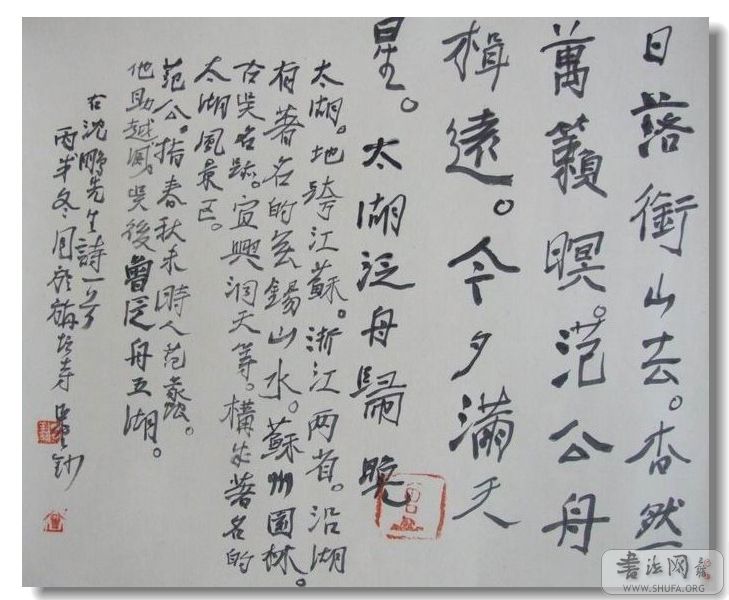 日落銜山去。杳然
萬籟暝。范公舟
楫遠。今夕滿天
星。太湖泛舟歸晚
太湖。地跨江蘇。浙江两省。沿湖
有著名的無錫山水。蘇州園林。
古吳名跡。宜興洞天等。構成著名的
太湖風景区。
范公。指春秋末時人范蠡。
他助越滅吳後曾泛舟五湖。
右沈鵬先生詩一首
丙年冬月於
鈔
書法网
WWW.SHUFA.ORG